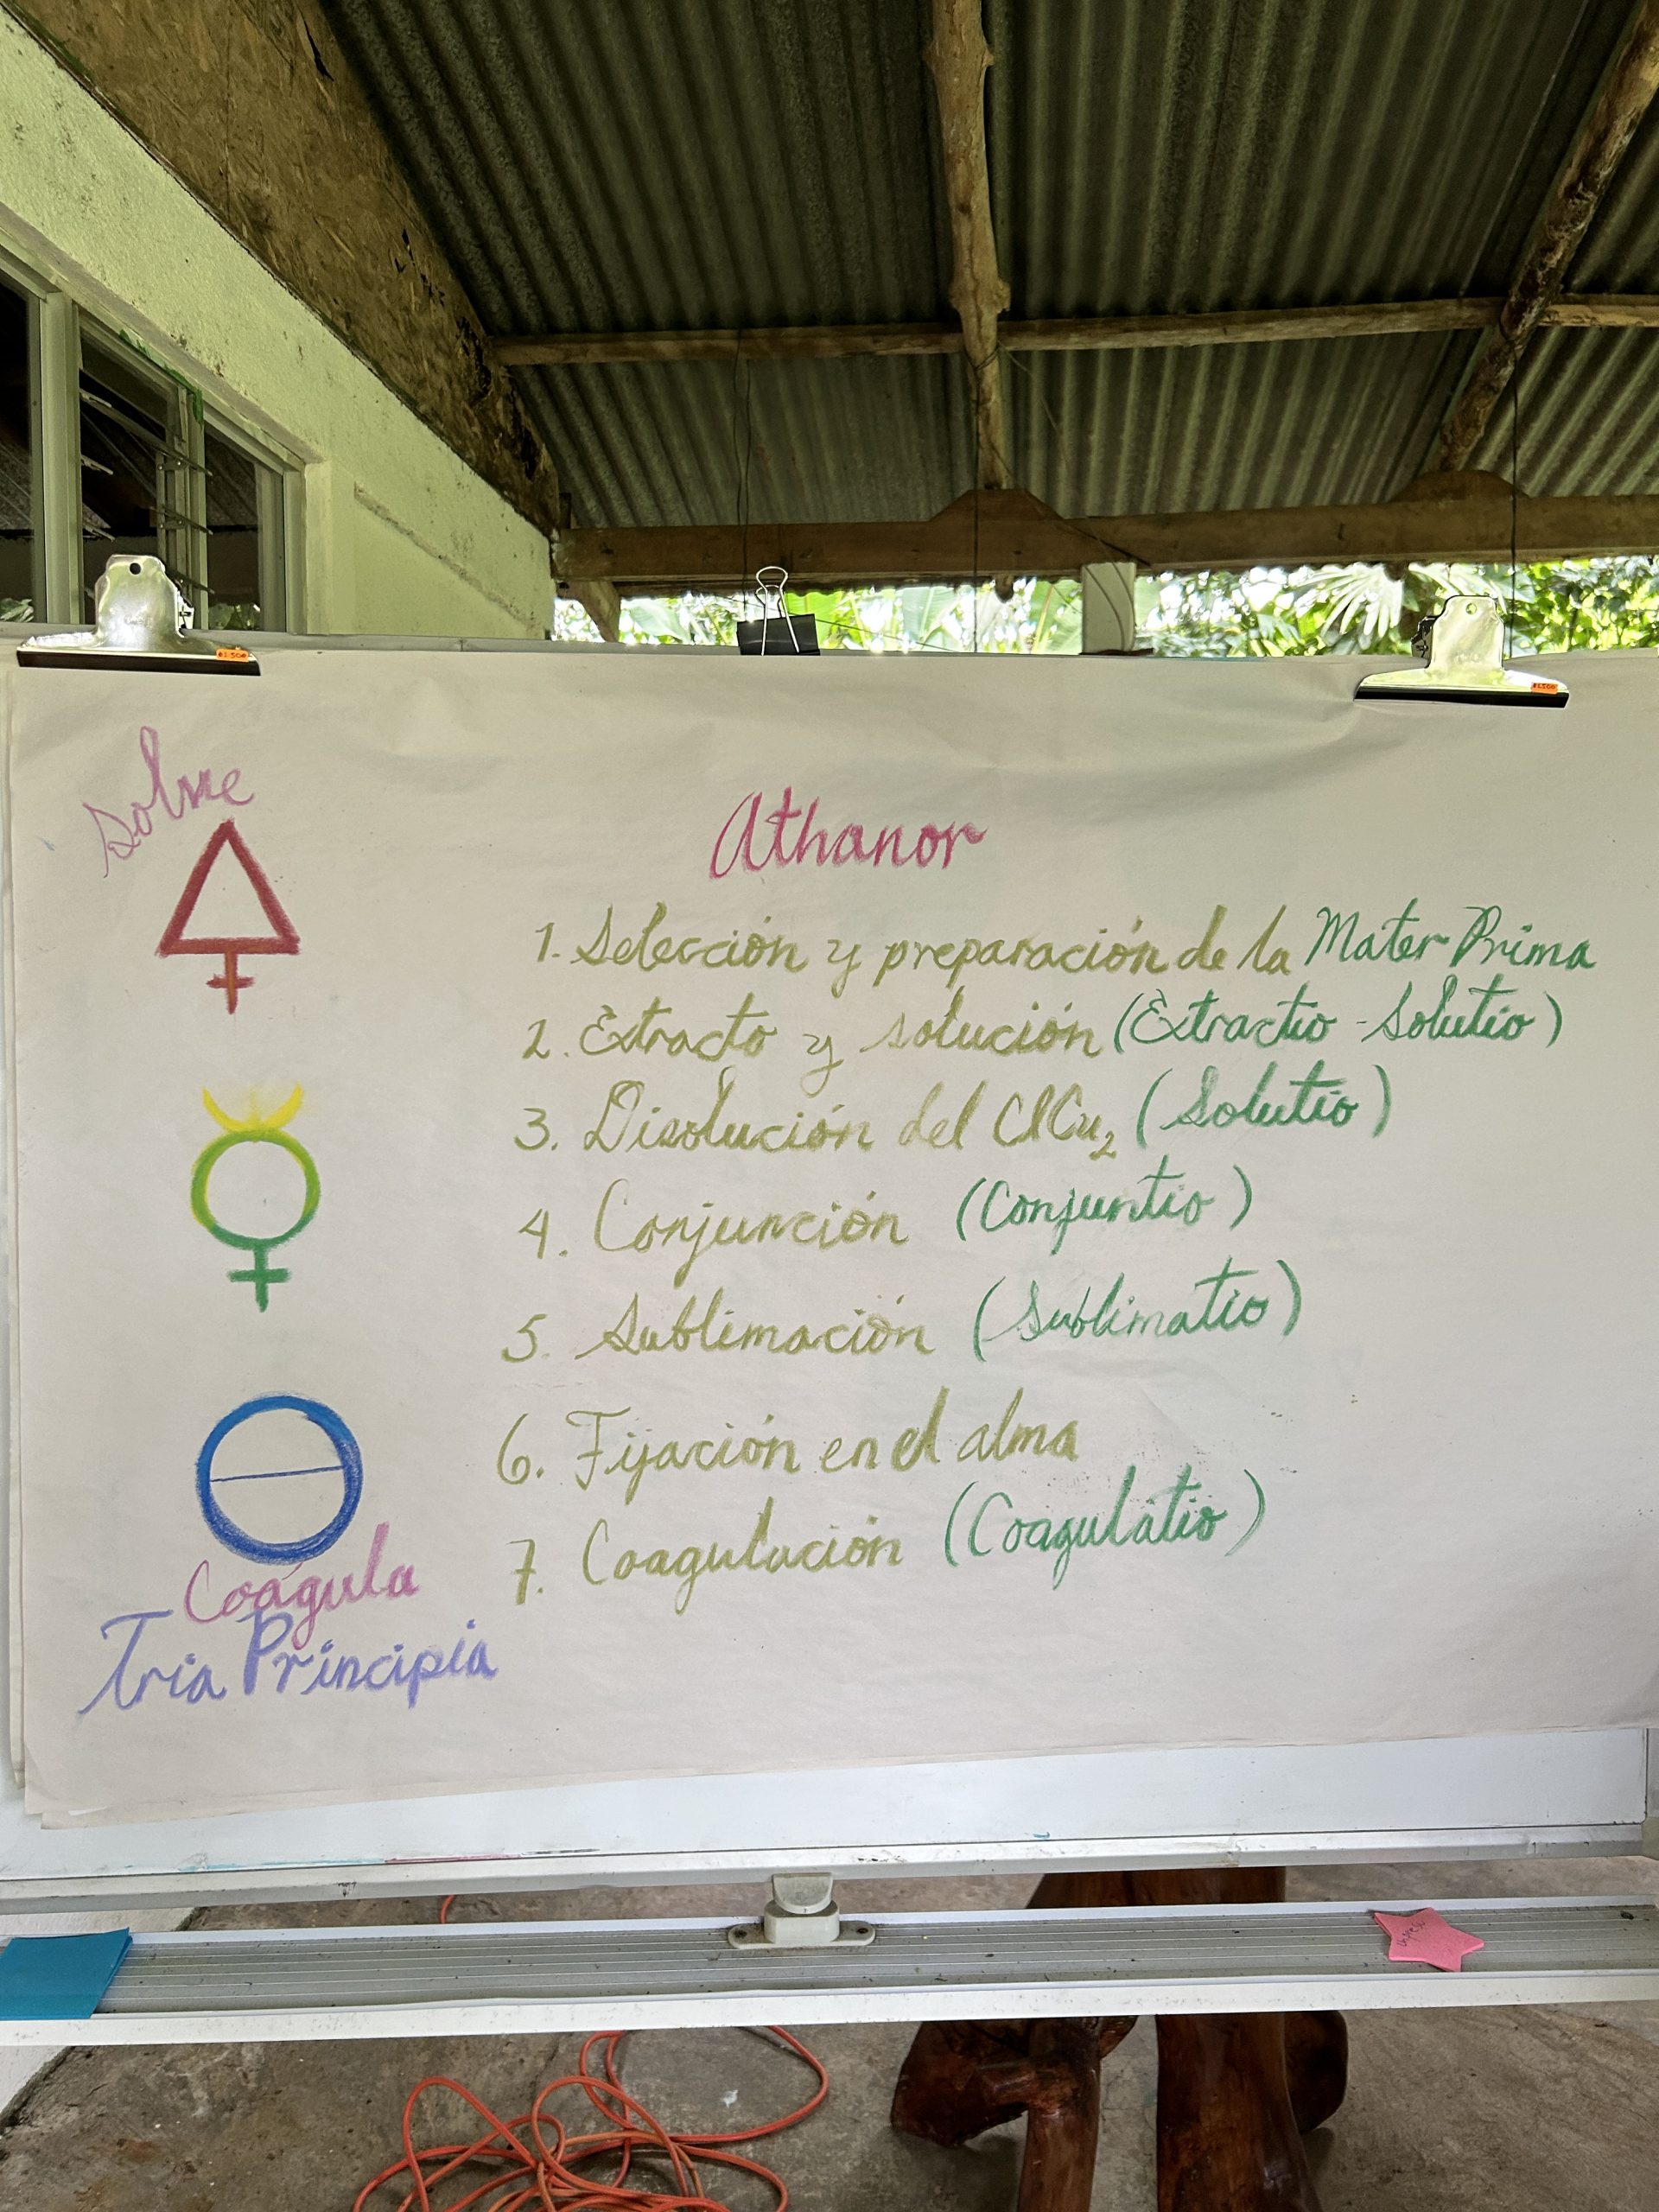 Solve
Athanor
1. Selección y preparación de la Mater Prima
2. Extracto y solución (Extractio - Solutio)
3. Disolución del ClCu₂ (Solutio)
4. Conjunción (Conjuntio)
5. Sublimación (Sublimatio)
6. Fijación en el alma
7. Coagulación (Coagulatio)
Coágula
Tria Principia